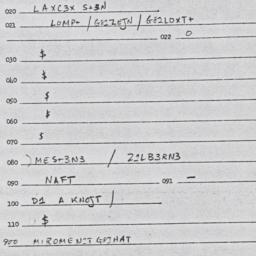 020 LAXC3X S+3N
021 LOMP+ / GF2LEJN / GF2LOXT+
022 0
030 $
040 $
050 $
060 $
070 $
080 ) MES+3N3 / Z1LB3RN3
090 NAFT 091 –
100 D1 A KNOJT /
110 $
900